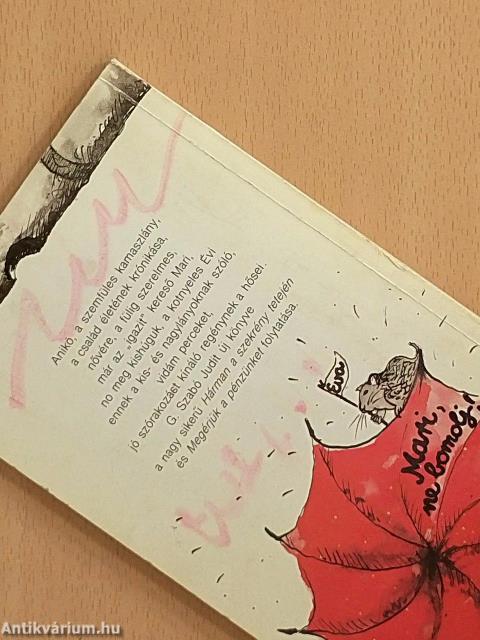 Anikó, a szemfüles kamaszlány,
a család életének krónikása,
nővére, a fülig szerelmes,
már az "igazit" kereső Mari,
no meg kishúguk, a kotnyeles Évi
ennek a kis- és nagylányoknak szóló,
vidám perceket,
jó szórakozást kínáló regénynek a hősei.
G. Szabó Judit új könyve
a nagy sikerű Hárman a szekrény tetején
és Megérjük a pénzünket folytatása.
Éva
Mari,
ne bomolj,
Antikvárium.hu